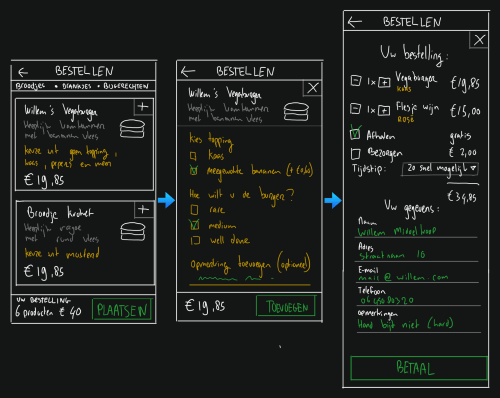 BESTELLEN
Broodjes • DRANKJES • BIJGERECHTEN
Willem's Vegaburger
Heerlijk
met bananen vlees
keuze uit geen topping,
kaas, pepers en meer
€19,85
Broodje kroket
Heerlijk
met rund vlees
keuze uit mosterd
€19,85
UW BESTELLING
6 producten € 40
PLAATSEN
BESTELLEN
X
Willem's Vegaburger
Heerlijk
met bananen vlees
Kies topping
Kaas
meegewokte bananen (+ €0,60)
Hoe wilt u de burger?
rare
medium
well done
Opmerking toevoegen (optioneel)
€19,85
TOEVOEGEN
BESTELLEN
X
Uw bestelling:
- 1x + Vegaburger €19,85
KAAS
- 1x + Flesje wijn €15,00
ROSÉ
Afhalen gratis
Bezorgen € 2,00
Tijdstip: zo snel mogelijk
€34,85
Uw gegevens:
Naam
Willem Middelkoop
Adres
straatnaam 16
E-mail
mail@willem.com
Telefoon
opmerkingen
Hond bijt niet (hard)
BETAAL